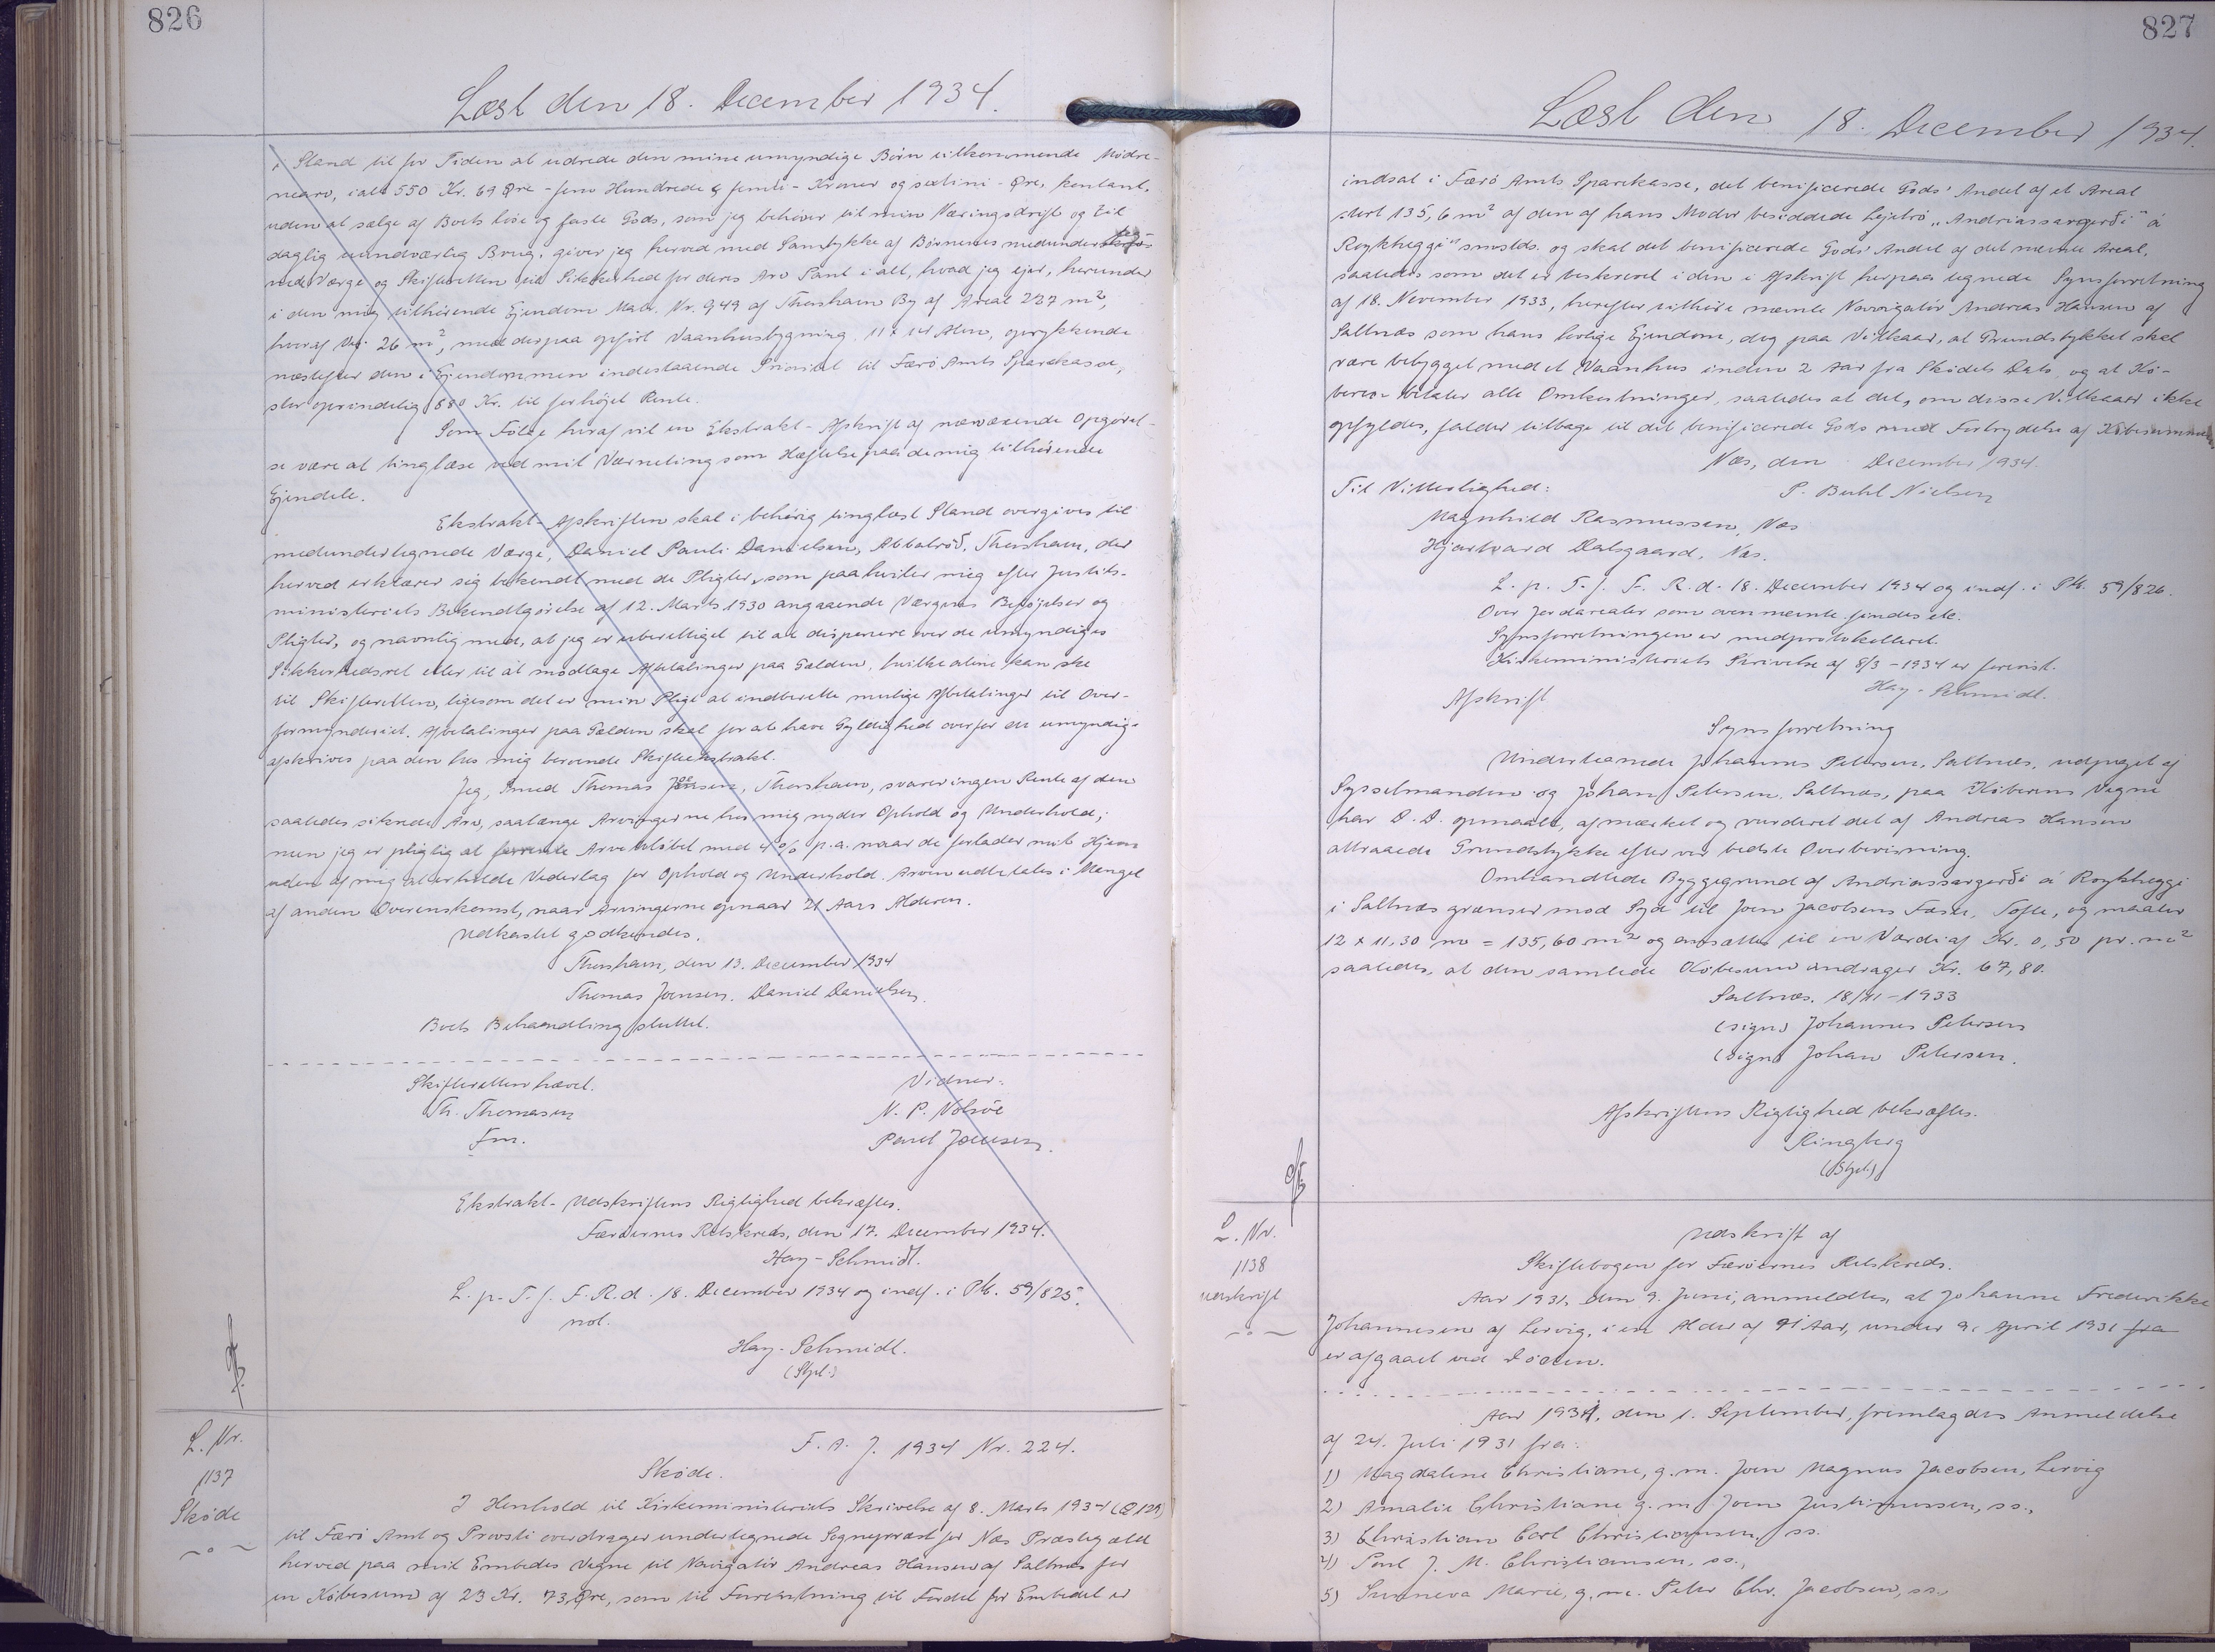 826
Læst den 18. December 1934.
i Stand til for Tiden at udrede den mine umyndige Børn tilkommende Mødre-
nearv, ialt 550 Kr. 69 Øre - fem Hundrede & femti - Kroner og sextini - Øre, kontant,
uden at sælge af Boets løse og faste Gods, som jeg behøver til min Næringsdrift og til
daglig uundværlig Brug, giver jeg herved med Samtykke af Børnenes medunderteg-
nede Værge og Skifteretten til Sikkerhed for deres Arv Pant i alt, hvad jeg ejer, herunder
i den mig tilhørende Ejendom Matr. Nr. 949 af Thorshavn By af Areal 237 m²,
heraf Vej 26 m², med derpaa opført Vaanhusbygning, 11 x 14 Alen, oprykkende
næstefter den i Ejendommen indestaaende Prioritet til Færø Amts Sparekasse,
stor oprindelig 880 Kr. til forhøjet Rente.
Som Følge heraf vil en Ekstrakt-Afskrift af nærværende Opgørel-
se være at tinglæse ved mit Værneting som Hæftelse paa de mig tilhørende
Ejendele.
Ekstrakt-Afskriften skal i behørig tinglæst Stand overgives til
medundertegnede Værge, Daniel Pauli Danielsen, Abbatrøð, Thorshavn, der
herved erklærer sig bekendt med de Pligter, som paahviler mig efter Justits-
ministeriets Bekendtgørelse af 12. Marts 1930 angaaende Værgers Beføjelser og
Pligter, og navnlig med, at jeg er uberettiget til at disponere over de umyndiges
Sikkerhedsret eller til at modtage Afbetalinger paa Gælden, hvilke alene kan ske
til Skifteretten, ligesom det er min Pligt at indberette mulige Afbetalinger til Over-
formynderiet. Afbetalinger paa Gælden skal for at have Gyldighed overfor de umyndige
afskrives paa den hos mig beroende Skifteekstrakt.
Jeg, Smed Thomas Joensen, Thorshavn, svarer ingen Rente af den
saaledes sikrede Arv, saalænge Arvingerne hos mig nyder Ophold og Underhold;
men jeg er pligtig at forrente Arvebeløbet med 4% p.a. naar de forlader mit Hjem
uden af mig at erholde Vederlag for Ophold og Underhold. Arven udbetales i Mangel
af anden Overenskomst, naar Arvingerne opnaar 21 Aars Alderen.
Udkastet godkendes.
Thorshavn, den 13. December 1934
Thomas Joensen. Daniel Danielsen.
Boets Behandling sluttet.
Skifteretten hævet. Vidner:
Th. Thomasen N. P. Nolsøe
Fm. Poul Joensen.
Ekstrakt-Udskriftens Rigtighed bekræftes.
Færøernes Retskreds, den 17. December 1934.
Hay-Schmidt.
L. p. T. f. F. R. d. 18. December 1934 og indf. i Ptk. 59/825.
not.
Hay-Schmidt.
(Stpl.)
L. Nr.
1137
Skøde
F. A. J. 1934 Nr. 224.
Skøde.
I Henhold til Kirkeministeriets Skrivelse af 8. Marts 1934
til Færø Amt og Provsti overdrager undertegnede Sognepræst for Næs Præstegæld
herved paa mit Embedes Vegne til Navigatør Andreas Hansen af Saltnæs for
en Købesum af 23 Kr. 73 Øre, som til Forrentning til Fordel for Embedet er
827
Læst den 18. December 1934.
indsat i Færø Amts Sparekasse, det benificerede Gods' Andel af et Areal
stort 135,6 m² af den af hans Moder besiddede Lejetrø „Andriassargerði" á
Roykheggi" smstds. og skal det benificerede Gods' Andel af det nævnte Areal,
saaledes som det er beskrevet i den i Afskrift herpaa tegnede Synsforretning
af 18. November 1933, herefter tilhøre nævnte Navigatør Andreas Hansen af
Saltnæs som hans lovlige Ejendom, dog paa Vilkaar, at Grundstykket skal
være bebygget med et Vaanhus inden 2 Aar fra Skødets Dato og at Kø-
beren betaler alle Omkostninger, saaledes at det, om disse Vilkaar ikke
opfyldes, falder tilbage til det benificerede Gods med Fortrydelse af Købesummen.
Næs, den December 1934.
Til Vitterlighed: P. Buhl Nielsen
Magnhild Rasmussen, Næs
Hjartvard Dalsgaard, Næs.
L. p. T. f. F. R. d. 18. December 1934 og indf. i Ptk. 59/826.
Over Jordarealer som ovennævnte findes etc.
Synsforretningen er medprotokolleret.
Kirkeministeriets Skrivelse af 8/3 - 1934 er forevist.
Hay-Schmidt.
Afskrift
Synsforretning
Undertegnede Johannes Petersen, Saltnæs, udpeget af
Sysselmanden og Johan Petersen, Saltnæs, paa Køberens Vegne
har D. D. opmaalt, afmærket og vurderet det af Andreas Hansen
attraaede Grundstykke efter vor bedste Overbevisning.
Omhandlede Byggegrund af Andriassargerði á Roykheggi
i Saltnæs grænser mod Syd til Joen Jacobsens Fæste, Tofte, og maaler
12 x 11,30 m = 135,60 m² og ansættes til en Værdi af Kr. 0,50 pr. m²
saaledes, at den samlede Købesum andrager Kr. 67,80.
Saltnæs. 18/11 - 1933
(sign) Johannes Petersen
(sign) Johan Petersen.
Afskriftens Rigtighed bekræftes.
Ringberg
(Stpl.)
L. Nr.
1138
Udskrift
Udskrift af
Skiftebogen for Færøernes Retskreds.
Aar 1931, den 9. Juni, anmeldtes, at Johanne Frederikke
Johannesen af Lervig, i en Alder af 91 Aar, under 9. April 1931 fra
er afgaaet ved Døden.
Aar 1931, den 1. September, fremlagdes Anmeldelse
af 24. Juli 1931 fra:
1) Magdalene Christiane, g. m. Joen Magnus Jacobsen, Lervig
2) Amalie Christiane g. m. Joen Justinussen, ss.,
3) Christian Carl Christiansen, ss.
4) Poul J. M. Christiansen, ss.,
5) Sunneva Marie, g. m. Peter Chr. Jacobsen, ss.